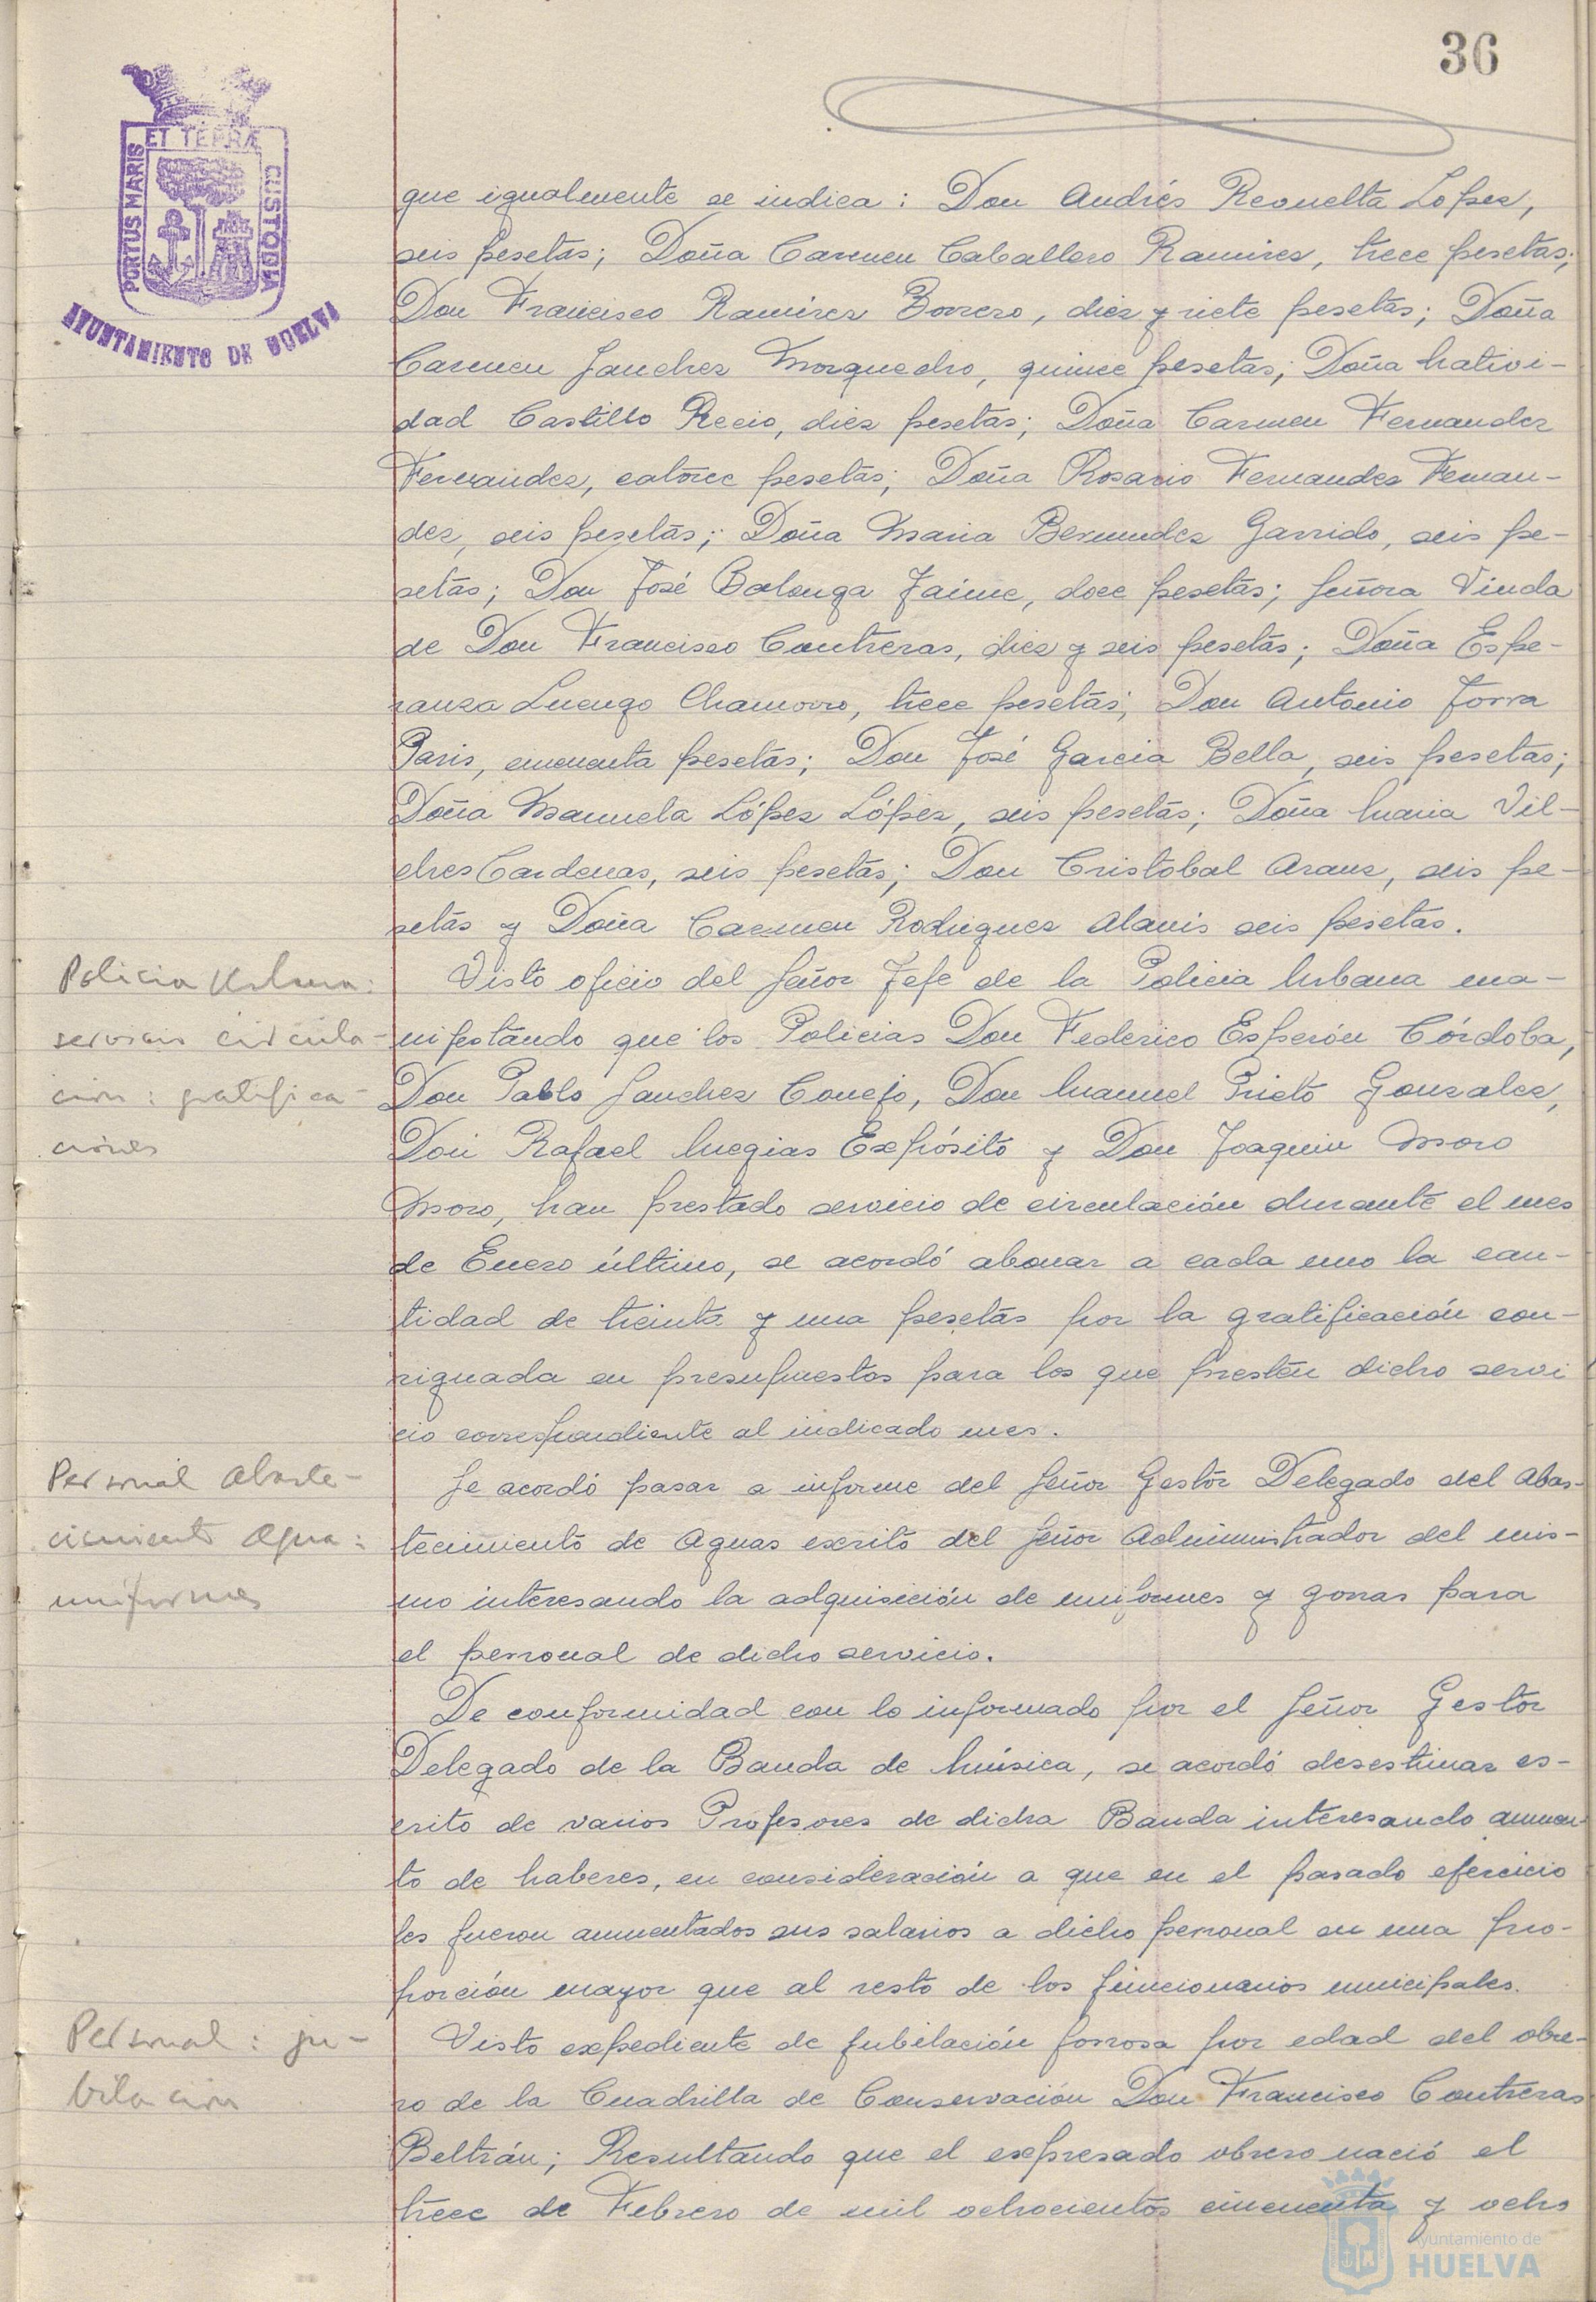 36
PORTUS MARIS
ET TERRÆ
CUSTODIA
AYUNTAMIENTO DE HUELVA
que igualmente se indica: Don Andrés Revuelta Lopez,
seis pesetas; Doña Carmen Caballero Ramirez, trece pesetas;
Don Francisco Ramirez Borrero, diez y siete pesetas; Doña
Carmen Sanchez Morquecho, quince pesetas; Doña Nativi-
dad Castillo Recio, diez pesetas; Doña Carmen Fernandez
Fernandez, catorce pesetas; Doña Rosario Fernandez Fernan-
dez, seis pesetas; Doña Maria Bermudez Garrido, seis pe-
setas; Don José Balonga Jaime, doce pesetas; Señora Viuda
de Don Francisco Contreras, diez y seis pesetas; Doña Espe-
ranza Luengo Chamorro, trece pesetas; Don Antonio Jorva
Paris, cincuenta pesetas; Don José Garcia Bella, seis pesetas;
Doña Manuela López López, seis pesetas; Doña Maria Vil-
ches Cardenas, seis pesetas; Don Cristobal Arauz, seis pe-
setas y Doña Carmen Rodriguez Alanis seis pesetas.
Policia Urbana:
servicio circula-
cion: gratifica-
ciones
Visto oficio del Señor Jefe de la Policia Urbana ma-
nifestando que los Policias Don Federico Esperón Córdoba,
Don Pablo Sanchez Conejo, Don Manuel Prieto Gonzalez,
Don Rafael Megias Expósito y Don Joaquin Moro
Moro, han prestado servicio de circulación durante el mes
de Enero último, se acordó abonar a cada uno la can-
tidad de treinta y una pesetas por la gratificación con-
signada en presupuestos para los que presten dicho servi
cio correspondiente al indicado mes.
Personal Abaste-
cimiento Agua:
uniformes
Se acordó pasar a informe del Señor Gestor Delegado del Abas-
tecimiento de Aguas escrito del Señor Administrador del mis-
mo interesando la adquisición de uniformes y gorras para
el personal de dicho servicio.
De conformidad con lo informado por el Señor Gestor
Delegado de la Banda de Música, se acordó desestimar es-
crito de varios Profesores de dicha Banda interesando aumen-
to de haberes, en consideración a que en el pasado ejercicio
les fueron aumentados sus salarios a dicho personal en una pro-
porción mayor que al resto de los funcionarios municipales.
Personal: ju-
bilacion
Visto expediente de jubilación forzosa por edad del obre-
ro de la Cuadrilla de Conservación Don Francisco Contreras
Beltrán; Resultando que el expresado obrero nació el
trece de Febrero de mil ochocientos cincuenta y ocho
Ayuntamiento de
HUELVA